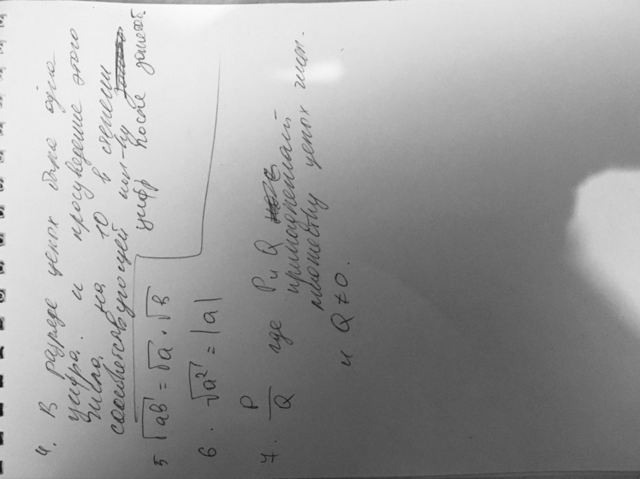 4. В разряде целых дана одна
цифра. и произведение этого
числа на 10 в степени
соответствующей кол-ву
цифр после запятой
5 √ab = √a · √b
6. √a² = |a|
7. P/Q где P и Q
принадлежат
множеству целых чисел.
и Q ≠ 0.